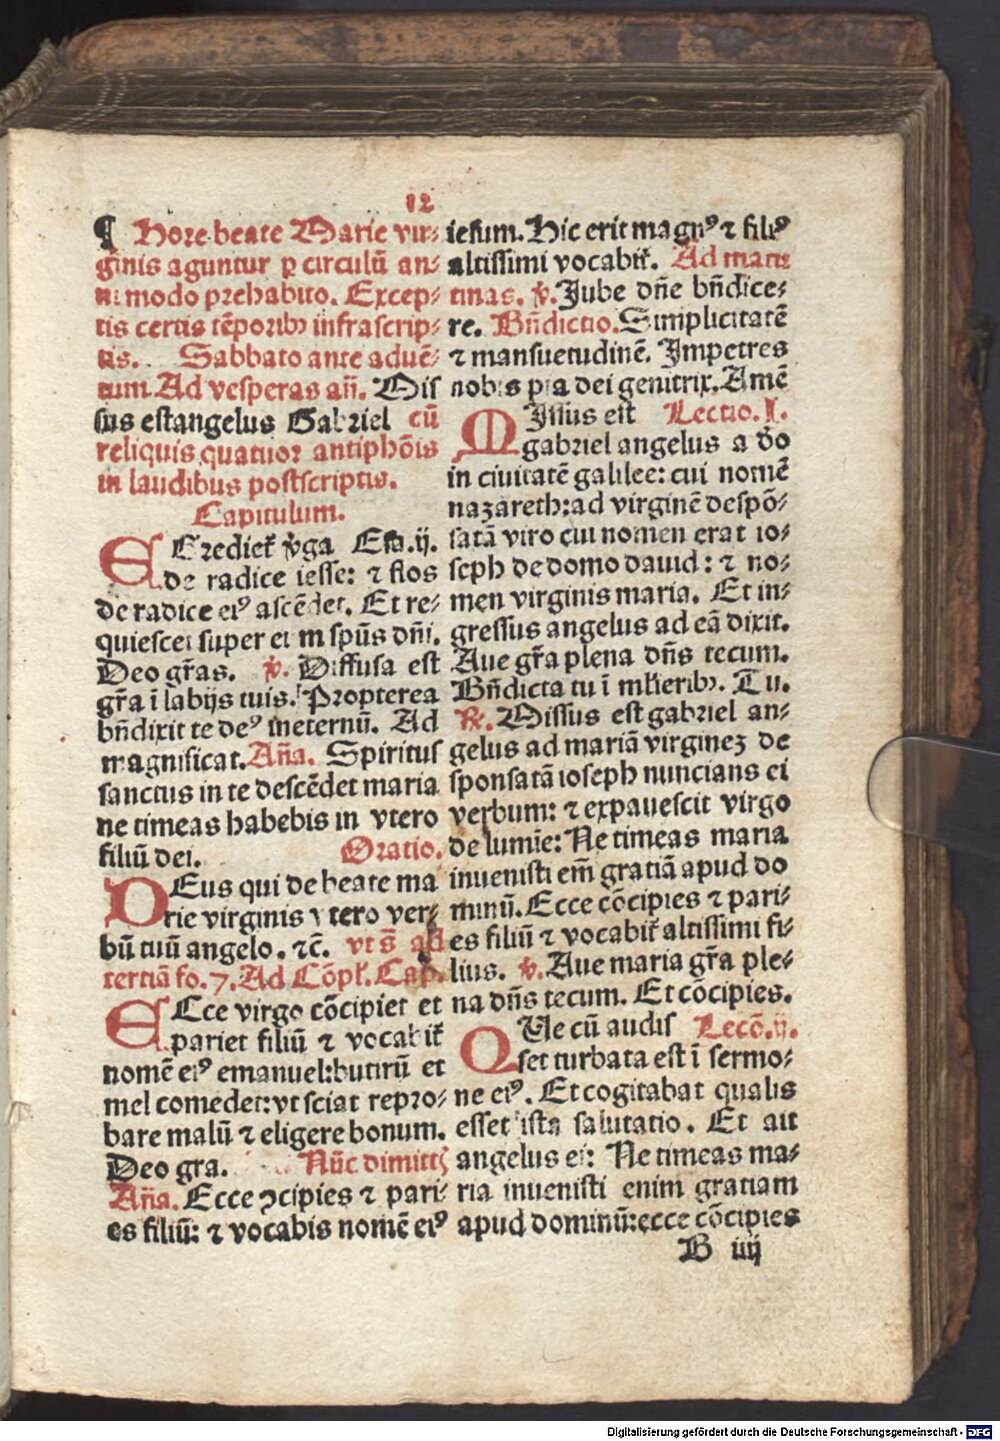 12
¶ Hore beate Marie vir-
ginis aguntur ꝑ circulū an-
ni modo prehabito. Excep-
tis certis tēporibꝫ infrascrip-
tis. Sabbato ante aduē-
tum. Ad vesperas añ. Mis
sus est angelus Gabriel cū
reliquis quatuor antiphōis
in laudibus postscriptis.
Capitulum.
EGrediet̃ v̾ga Esa.ij.
de radice iesse: ⁊ flos
de radice eiꝰ ascēdet. Et re-
quiescet super eum spūs dñi.
Deo gr̃as. ℣. Diffusa est
gr̃a ī labijs tuis. Propterea
bñdixit te deꝰ ineternū. Ad
magnificat. Aña. Spiritus
sanctus in te descēdet maria
ne timeas habebis in vtero
filiū dei. Oratio.
DEus qui de beate ma
rie virginis vtero ver-
bū tuū angelo. ⁊c̄. vt s̄ ad
tertiā fo. 7. Ad Cōpl̕. Cap.
ECce virgo cōcipiet et
pariet filiū ⁊ vocabit̃
nomē eiꝰ emanuel: butirū et
mel comedet: vt sciat repro-
bare malū ⁊ eligere bonum.
Deo gra. Nūc dimittꝭ
Aña. Ecce ↄcipies ⁊ pari-
es filiū: ⁊ vocabis nomē eiꝰ
iesum. Hic erit magnꝰ ⁊ filiꝰ
altissimi vocabit̃. Ad matu
tinas. ℣. Jube dñe bñdice-
re. Bñdictio. Simplicitatē
⁊ mansuetudinē. Impetres
nobis pia dei genitrix. Amē
MIssus est Lectio. I.
gabriel angelus a do
in ciuitatē galilee: cui nomē
nazareth: ad virginē despō-
satā viro cui nomen erat io-
seph de domo dauid: ⁊ no-
men virginis maria. Et in-
gressus angelus ad eā dixit.
Aue gr̃a plena dñs tecum.
Bñdicta tu ī mlierибꝫ. Tu.
℟. Missus est gabriel an-
gelus ad mariā virginez de
sponsatā ioseph nuncians ei
verbum: ⁊ expauescit virgo
de lumīe: Ne timeas maria
inuenisti em̄ gratiā apud do
minū. Ecce cōcipies ⁊ pari-
es filiū ⁊ vocabit̃ altissimi fi-
lius. ℣. Aue maria gr̃a ple-
na dñs tecum. Et cōcipies.
QUe cū audis Lecō. ij.
set turbata est ī sermo-
ne eiꝰ. Et cogitabat qualis
esset ista salutatio. Et ait
angelus ei: Ne timeas ma-
ria inuenisti enim gratiam
apud dominū: ecce cōcipies
B iiij
Digitalisierung gefördert durch die Deutsche Forschungsgemeinschaft - DFG